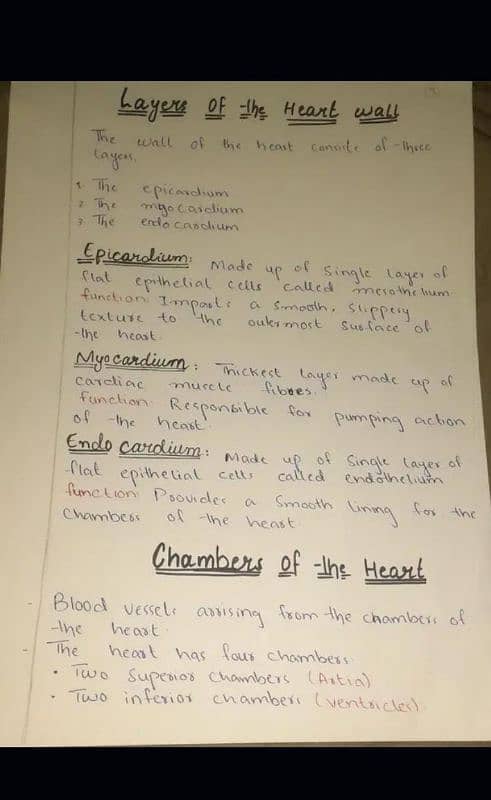 Layers of the Heart wall
The wall of the heart consite of three
layers.
1. The epicardium
2. The myocardium
3. The endocardium
Epicardium: Made up of Single layer of
flat epithelial cells called mesothelium
function: Imparts a Smooth, Slippery
texture to the outermost Surface of
the heart.
Myocardium: Thickest layer made up of
cardiac muscle fibres.
function: Responsible for pumping action
of the heart.
Endo cardium: Made up of Single layer of
flat epithelial cells called endothelium
function: Provides a Smooth lining for the
Chambers of the heart
Chambers of the Heart
- Blood vessels arrising from the chambers of
the heart.
- The heart has four chambers
• Two Superior chambers (Artia)
• Two inferior chambers (ventricles)